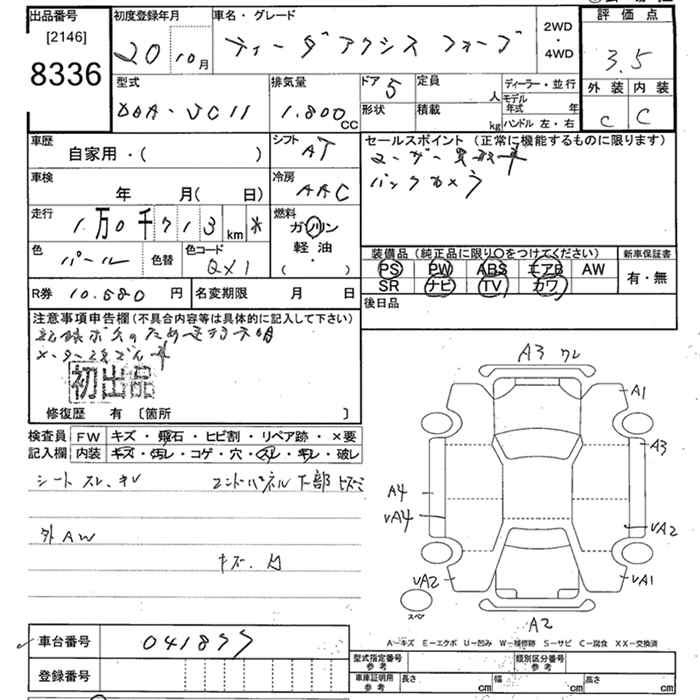 出品番号 初度登録年月 車名・グレード 評価点
[2146] 20 10月 ティーダアクシス 2WD・4WD 3.5
8336
型式 排気量 ドア 5 定員 人 ディーラー・並行 外装 内装
DBA-JC11 1.800cc 形状 積載 kg モデル年式 年 C C
ハンドル 左・右
車歴 シフト AT セールスポイント (正常に機能するものに限ります)
自家用・( )
車検 冷房 AAC バックカメラ
年 月( 日)
走行 燃料 ガソリン
1万0千713km* 軽油
( ・ )
色 パール 色替 色コード QX1 装備品(純正品に限り○をつけてください) 新車保証書
PS PW ABS エアB AW 有・無
SR ナビ TV カワ
R券 10.580円 名変期限 月 日 後日品
注意事項申告欄(不具合内容等は具体的に記入して下さい)
初出品
修復歴 有 〔箇所 〕
検査員 FW キズ・飛石・ヒビ割・リペア跡・×要
記入欄 内装 キズ・汚レ・コゲ・穴・スレ・キレ・破レ
シート スレ、キレ エンドパネル 下部
外AW
キズ.
A3 ワレ
A1
A3
A4
VA4
VA2
VA2
VA1
スペア
A2
A-キズ E-エクボ U-凹み W-補修跡 S-サビ C-腐食 XX-交換済
車台番号 041899 型式指定番号 参考 類別区分番号 参考
登録番号 車庫証明用 参考 長さ cm 幅 cm 高さ cm